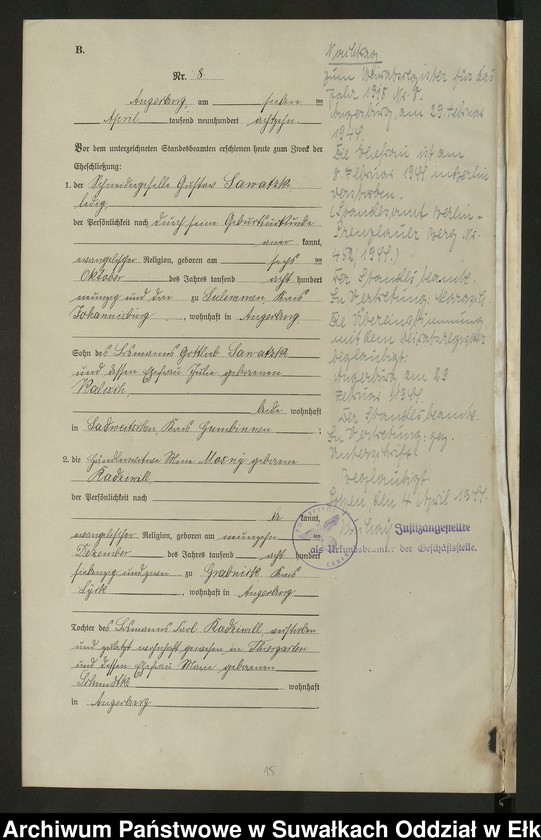 B.
Nr. 8
Angerburg, am sieben ten
April tausend neunhundert achtzehn
Vor dem unterzeichneten Standesbeamten erschienen heute zum Zweck der
Eheschließung:
1. der Schmiedegeselle Gustav Sawatzki
ledig
der Persönlichkeit nach durch seine Geburtsurkunde
aner kannt,
evangelischer Religion, geboren am sechs ten
Oktober des Jahres tausend acht hundert
neunzig und drei zu Sulimmen, Kreis
Johannisburg, wohnhaft in Angerburg
Sohn des Losmanns Gottlieb Sawatzki
und dessen Ehefrau Julie geborenen
beide wohnhaft
in Kreis Gumbinnen;
2. die Mina geborene
der Persönlichkeit nach
be kannt,
evangelischer Religion, geboren am neunzehn ten
Dezember des Jahres tausend acht hundert
siebenzig und zu Grabnick, Kreis
Lyck, wohnhaft in Angerburg
Tochter des Losmanns Karl verstorben
und zuletzt wohnhaft gewesen in Thiergarten
und dessen Ehefrau Marie geborenen
wohnhaft
in Angerburg.
Nachtrag
zum Heiratsregister für das
Jahr 1918 Nr. 8.
Angerburg, am 29. Februar
1944.
Die Ehefrau ist am
8. Februar 1944 in Berlin
verstorben.
(Standesamt Berlin-
Prenzlauer Berg Nr.
452/1944.)
Der Standesbeamte.
In Vertretung:
Die Übereinstimmung
mit dem Heiratsregister
beglaubigt:
Angerburg, am 29
Februar 1944.
Der Standesbeamte.
In Vertretung: gez.
Unterschrift
Beglaubigt
den 4 April 1944.
Justizangestellte
als Urkundsbeamter der Geschäftsstelle.
15
Archiwum Państwowe w Suwałkach Oddział w Ełku